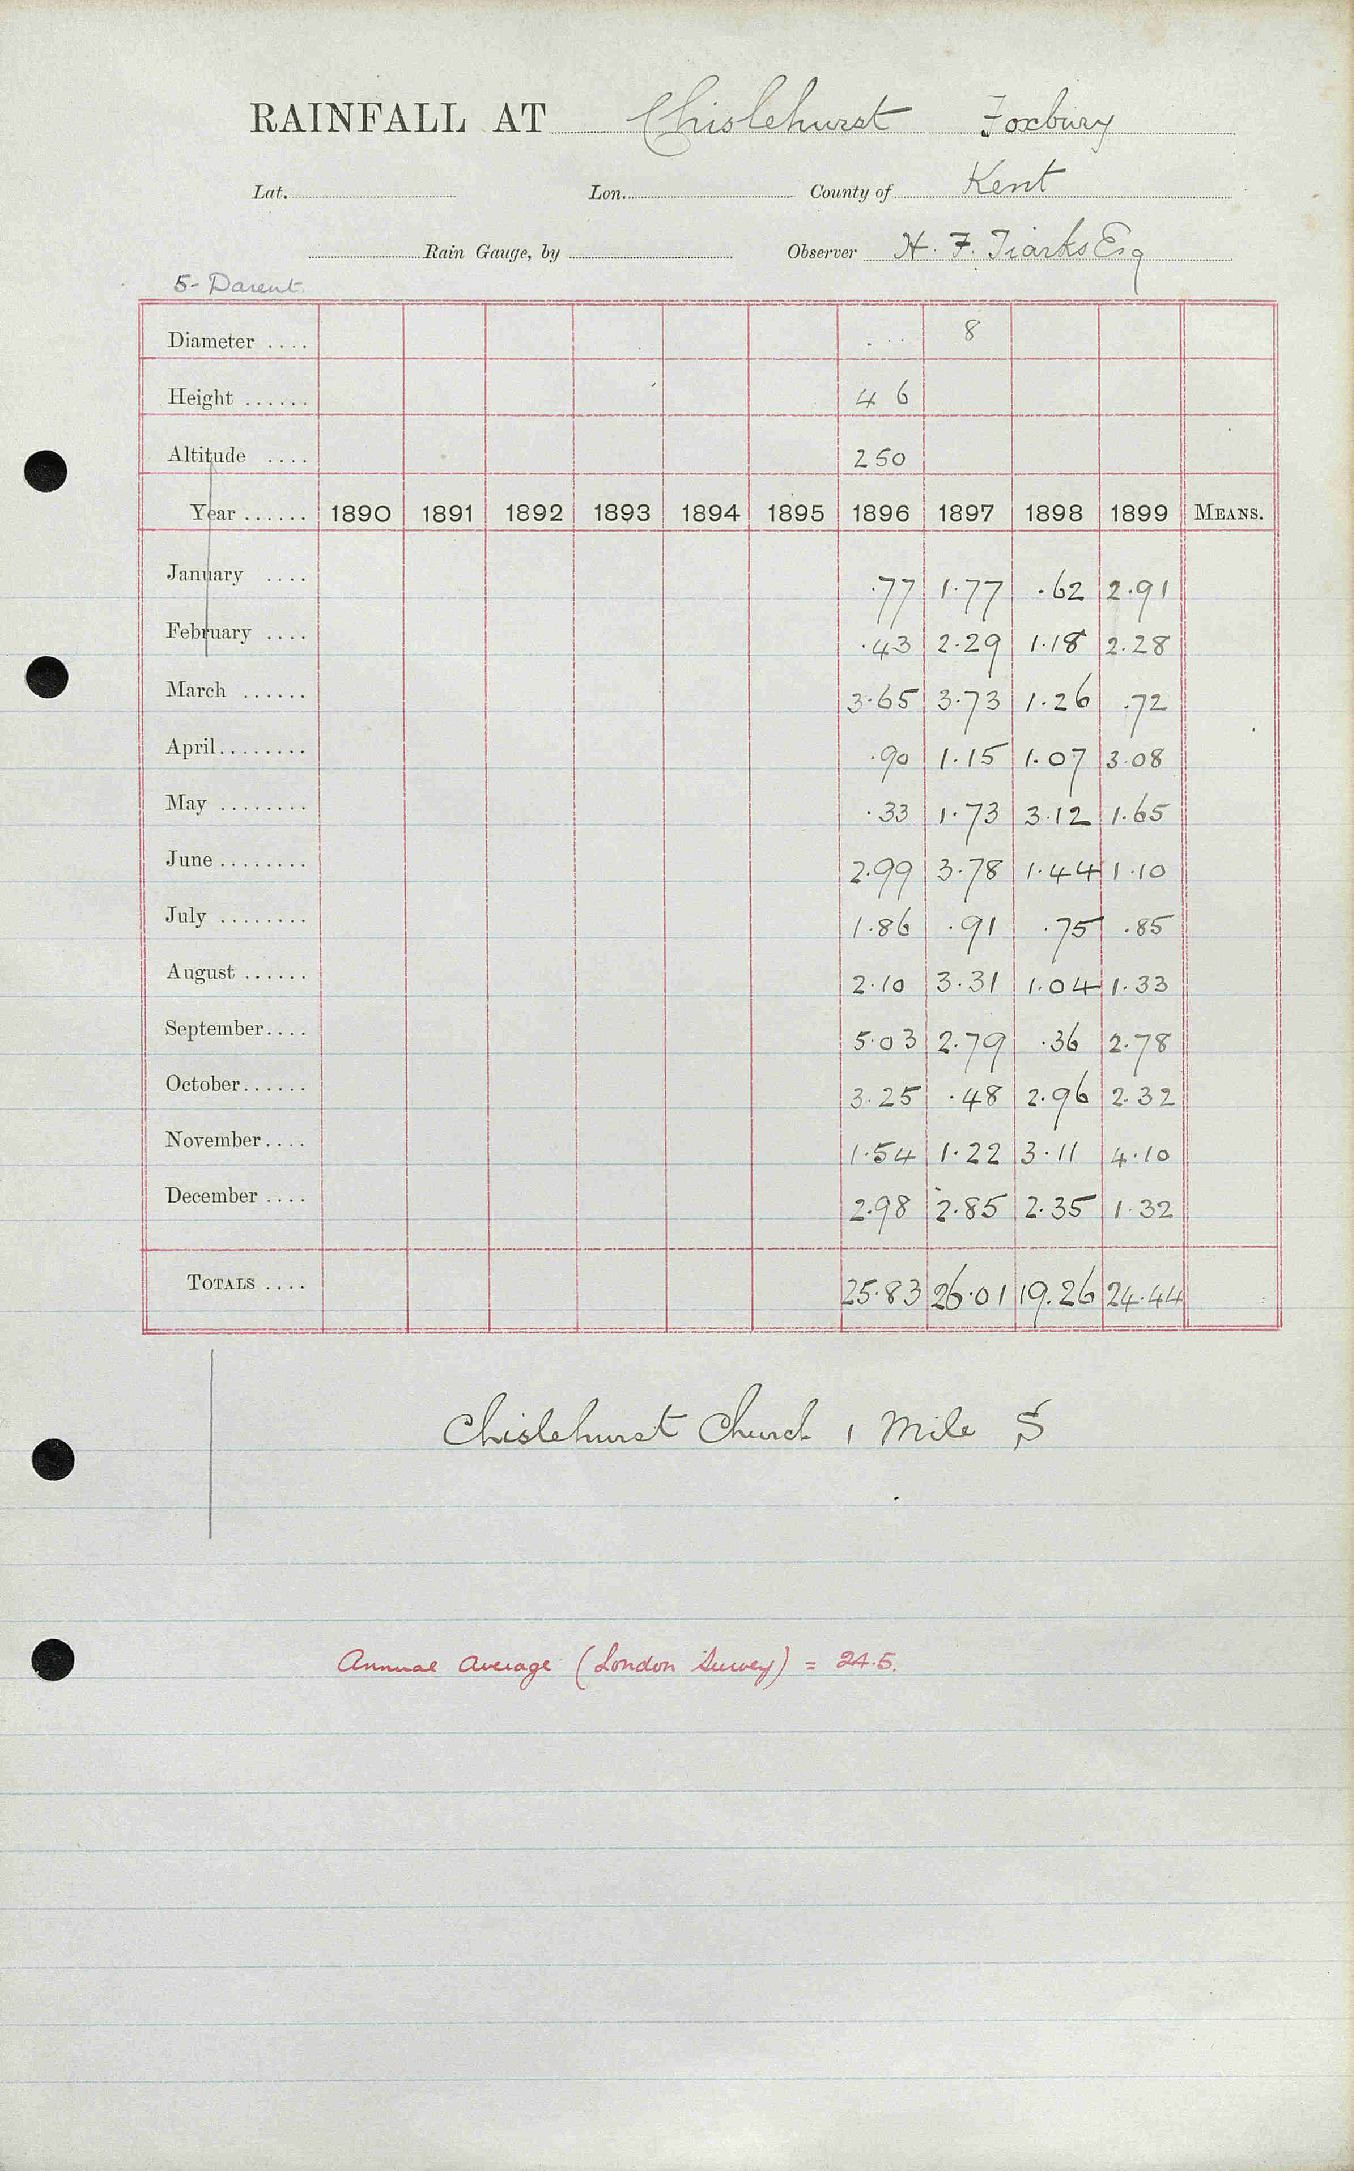 RAINFALL AT Chislehurst Foxbury
Lat. Lon. County of Kent
Rain Gauge, by Observer H. F. Tiarks Esq
5- Darent
Diameter .... 8
Height ...... 4 6
Altitude .... 250
Year ...... 1890 1891 1892 1893 1894 1895 1896 1897 1898 1899 MEANS.
January .... .77 1.77 .62 2.91
February .... .43 2.29 1.18 2.28
March ...... 3.65 3.73 1.26 .72
April........ .90 1.15 1.07 3.08
May ........ .33 1.73 3.12 1.65
June ........ 2.99 3.78 1.44 1.10
July ........ 1.86 .91 .75 .85
August ...... 2.10 3.31 1.04 1.33
September.... 5.03 2.79 .36 2.78
October...... 3.25 .48 2.96 2.32
November.... 1.54 1.22 3.11 4.10
December .... 2.98 2.85 2.35 1.32
TOTALS .... 25.83 26.01 19.26 24.44
Chislehurst Church 1 Mile S
Annual Average (London Survey) = 24.5.